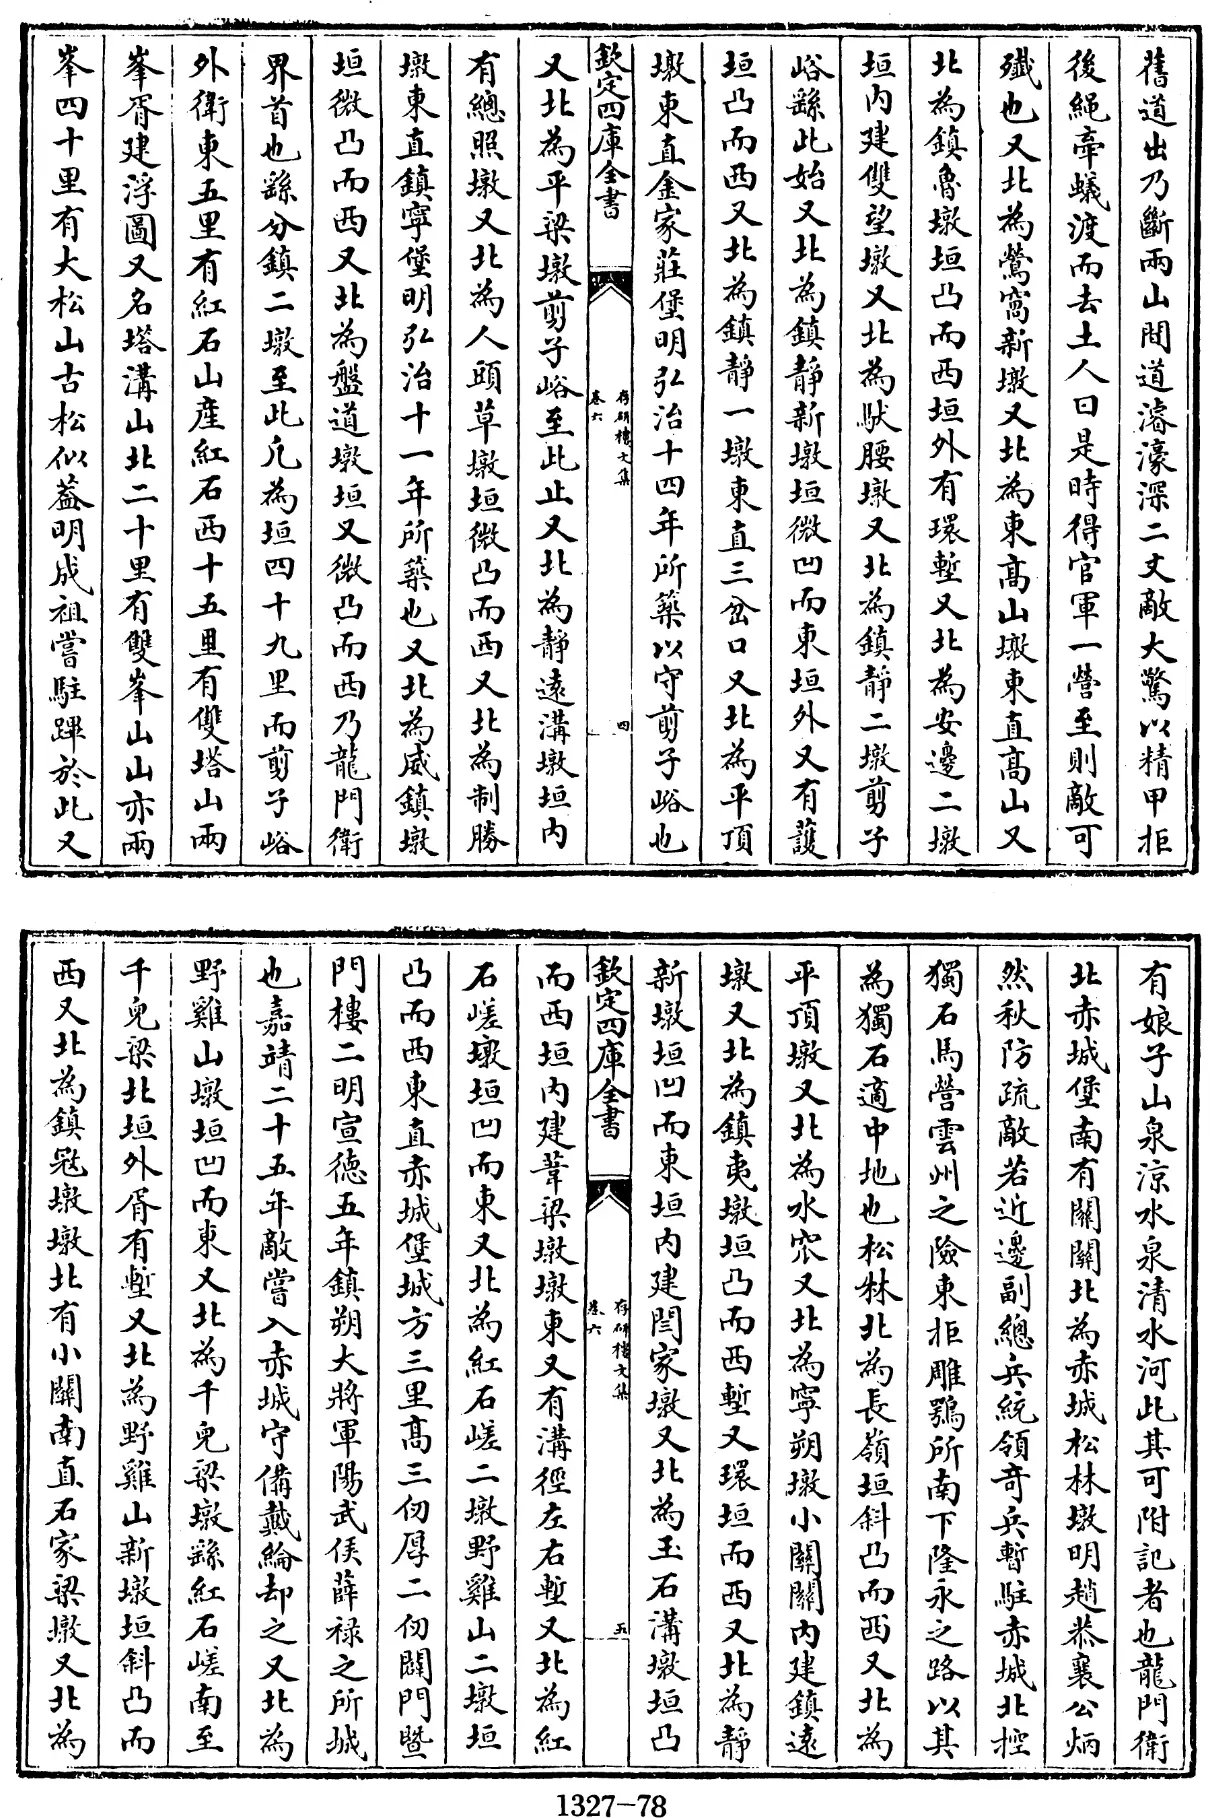 舊道出乃斷兩山間道濬濠深二丈敵大驚以精甲拒
後繩牽蟻渡而去土人曰是時得官軍一營至則敵可
殲也又北為鶯窩新墩又北為東髙山墩東直髙山又
北為鎮魯墩垣凸而西垣外有環塹又北為安邊二墩
垣内建雙望墩又北為駄腰墩又北為鎮靜二墩剪子
峪繇此始又北為鎮靜新墩垣微凹而東垣外又有護
垣凸而西又北為鎮靜一墩東直三岔口又北為平頂
墩東直金家莊堡明弘治十四年所築以守剪子峪也
欽定四庫全書
存硏樓文集
卷六
四
又北為平梁墩剪子峪至此止又北為靜遠溝墩垣内
有總照墩又北為人頭草墩垣微凸而西又北為制勝
墩東直鎮寧堡明弘治十一年所築也又北為威鎮墩
垣微凸而西又北為盤道墩垣又微凸而西乃龍門衛
界首也繇分鎮二墩至此凡為垣四十九里而剪子峪
外衛東五里有紅石山産紅石西十五里有雙塔山兩
峯胥建浮圖又名塔溝山北二十里有雙峯山山亦兩
峯四十里有大松山古松似葢明成祖嘗駐蹕於此又
有娘子山泉涼水泉清水河此其可附記者也龍門衛
北赤城堡南有關關北為赤城松林墩明趙恭襄公炳
然秋防疏敵若近邊副總兵統領竒兵暫駐赤城北控
獨石馬營雲州之險東拒雕鶚所南下隆永之路以其
為獨石適中地也松林北為長嶺垣斜凸而西又北為
平頂墩又北為水泉又北為寧朔墩小關關内建鎮遠
墩又北為鎮夷墩垣凸而西塹又環垣而西又北為靜
新墩垣凹而東垣内建閆家墩又北為玉石溝墩垣凸
欽定四庫全書
存硏樓文集
卷六
五
而西垣内建葦梁墩墩東又有溝徑左右塹又北為紅
石嵯墩垣凹而東又北為紅石嵯二墩野雞山二墩垣
凸而西東直赤城堡城方三里髙三仞厚二仞闢門暨
門樓二明宣德五年鎮朔大將軍陽武侯薛祿之所城
也嘉靖二十五年敵嘗入赤城守備戴綸却之又北為
野雞山墩垣凹而東又北為千皃梁墩繇紅石嵯南至
千皃梁北垣外胥有塹又北為野雞山新墩垣斜凸而
西又北為鎮冦墩墩北有小關南直石家梁墩又北為
1327-78